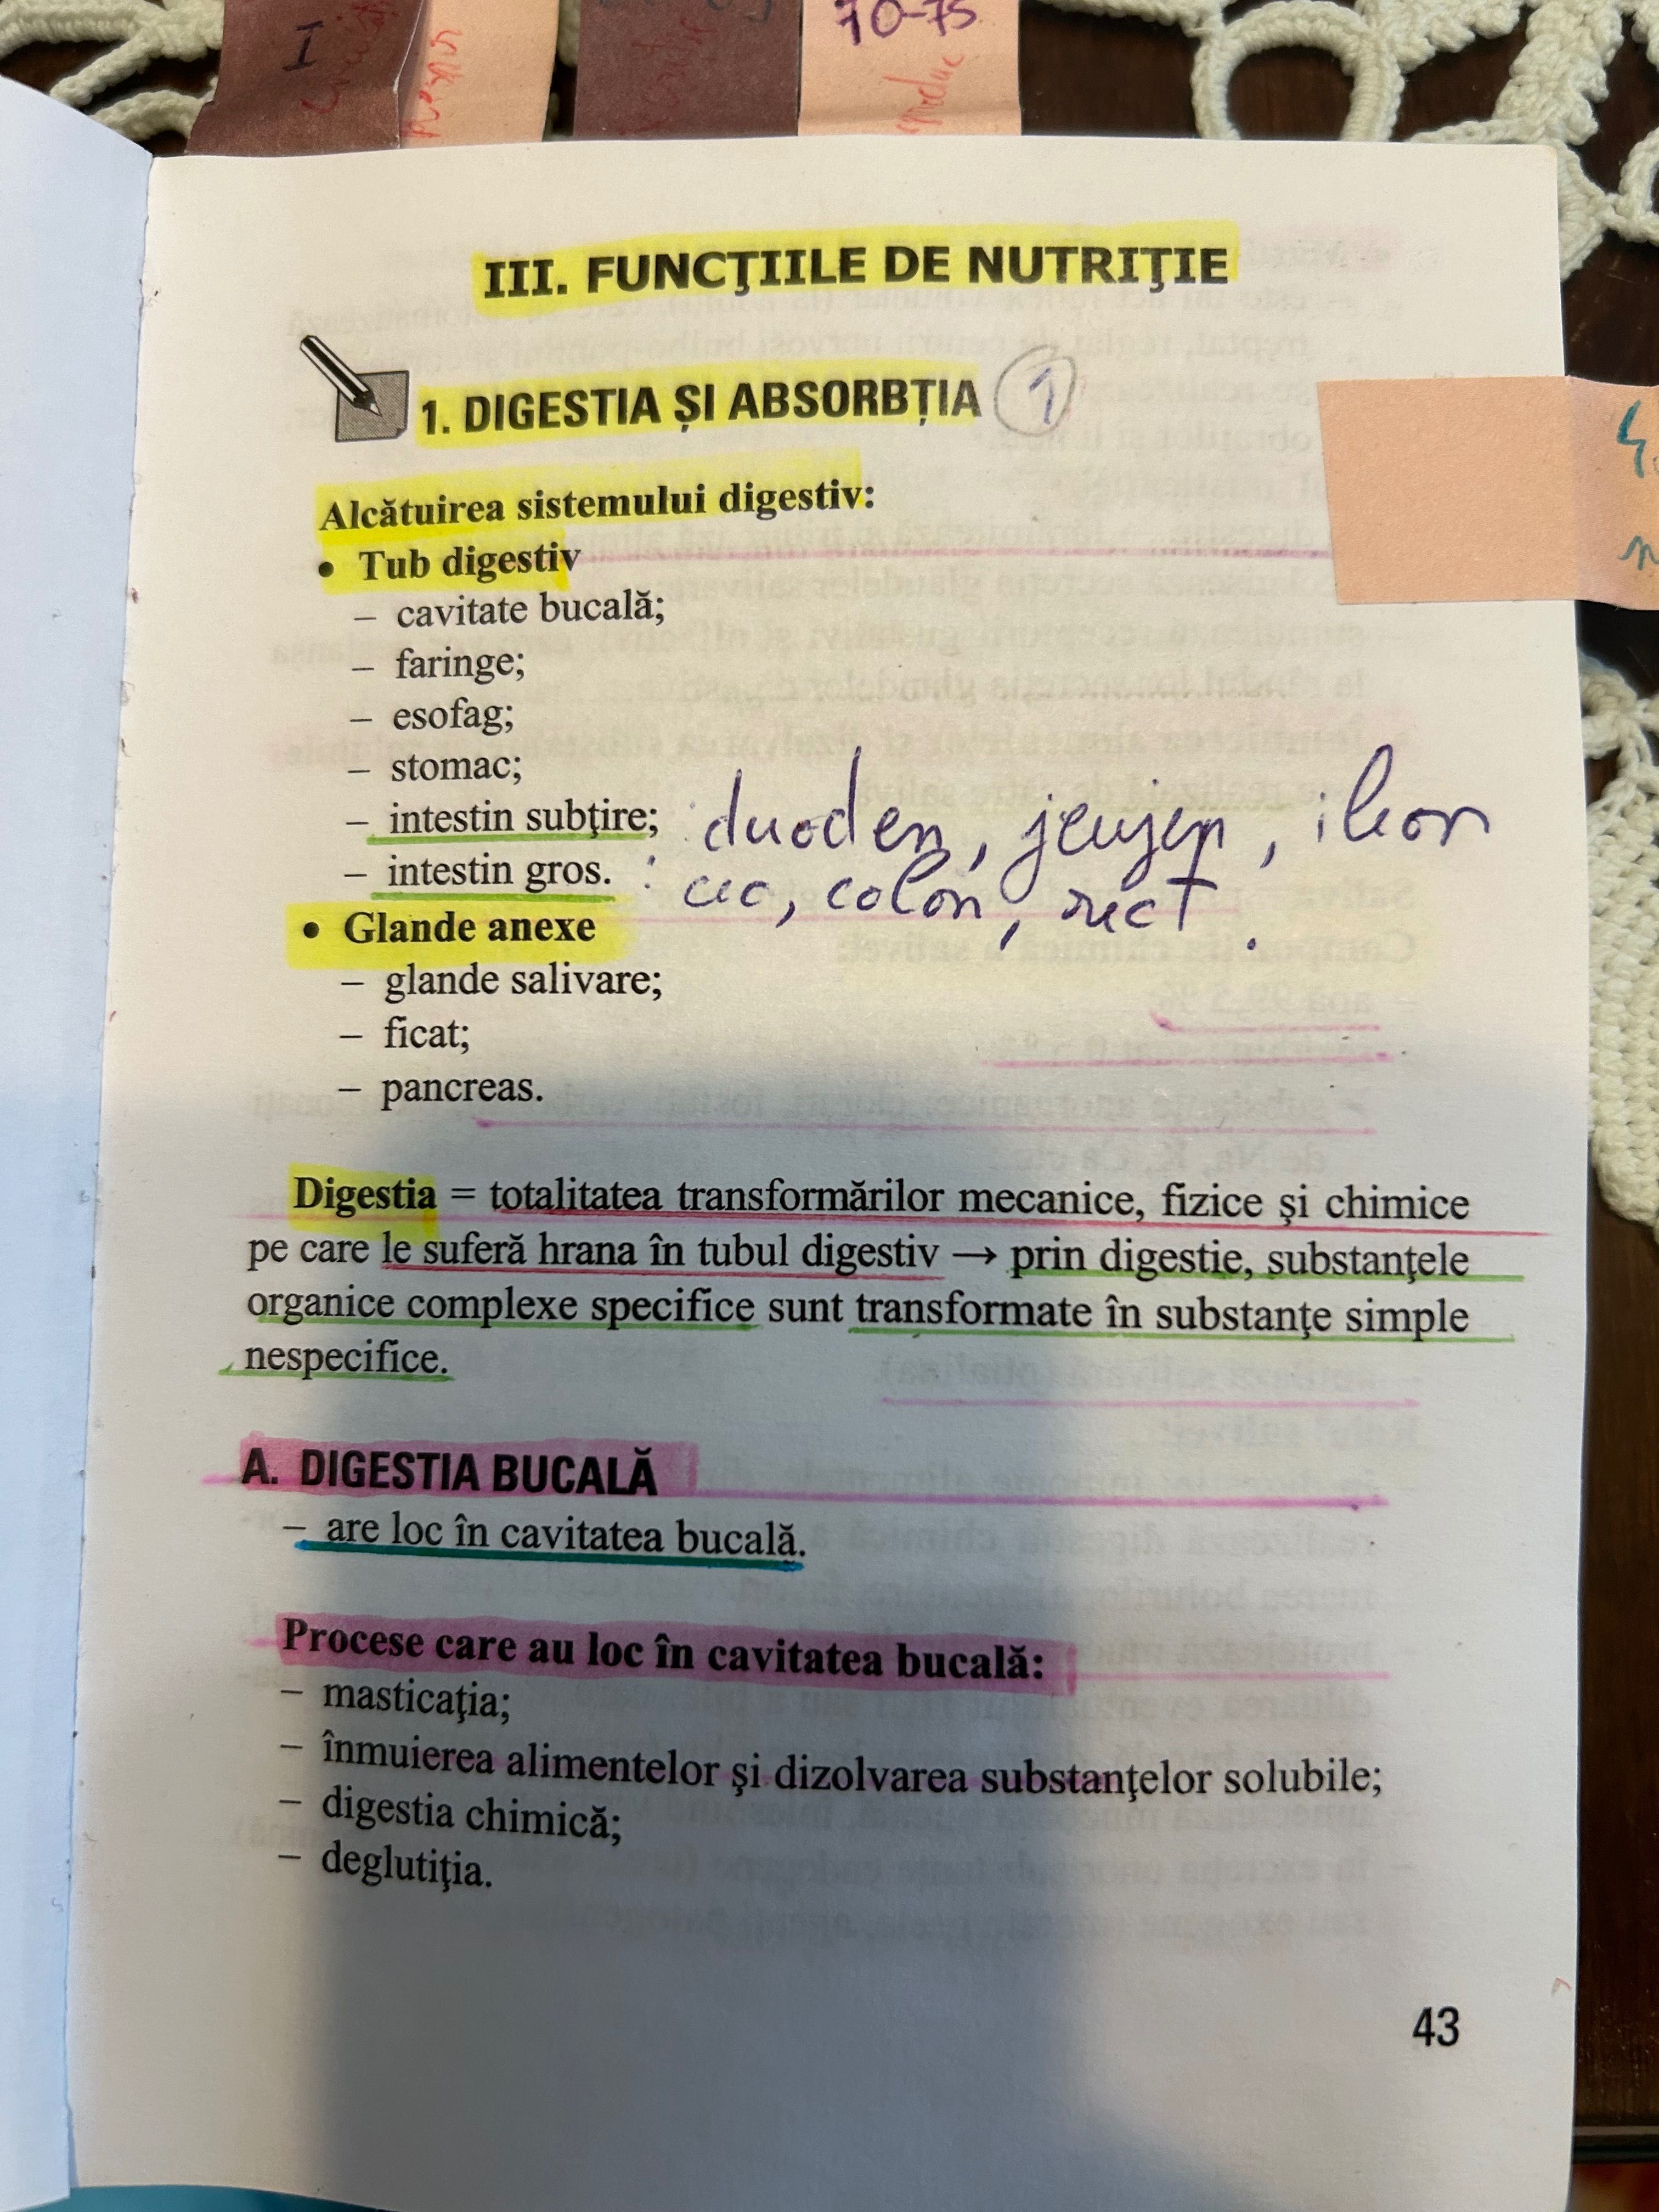 I
70-75
III. FUNCŢIILE DE NUTRIŢIE
1. DIGESTIA ŞI ABSORBŢIA 1
Alcătuirea sistemului digestiv:
• Tub digestiv
– cavitate bucală;
– faringe;
– esofag;
– stomac;
– intestin subţire; : duoden, jejen, ileon
– intestin gros. : cec, colon, rect.
• Glande anexe
– glande salivare;
– ficat;
– pancreas.
Digestia = totalitatea transformărilor mecanice, fizice şi chimice
pe care le suferă hrana în tubul digestiv → prin digestie, substanţele
organice complexe specifice sunt transformate în substanţe simple
nespecifice.
A. DIGESTIA BUCALĂ
– are loc în cavitatea bucală.
Procese care au loc în cavitatea bucală:
– masticaţia;
– înmuierea alimentelor şi dizolvarea substanţelor solubile;
– digestia chimică;
– deglutiţia.
43